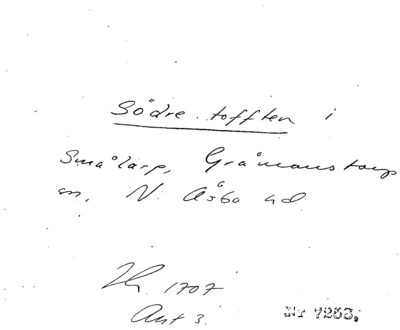 Södre tofften i
Smålarp, Gråmanstorps
sn, N. Åsbo hd
Jb 1707
Ant 3.
Nr 7253.